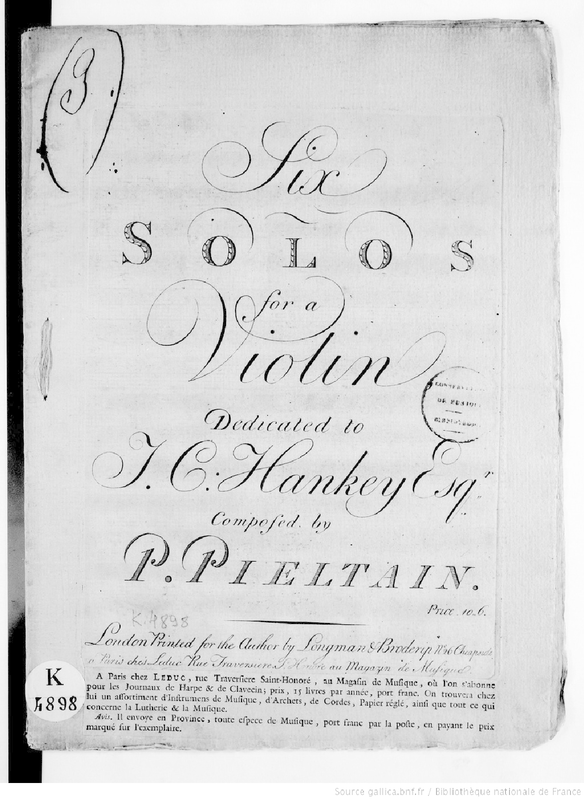 3
Six
SOLOS
for a
Violin
CONSERVATOIRE
DE MUSIQUE
Dedicated to
J. C. Hankey Esqr.
Compofed by
P. PIELTAIN.
Price. 10.6.
K.4898
London Printed for the Author by Longman & Broderip No. 26 Cheapside
a Paris chez Leduc Rue Traversiere St. Honoré au Magazin de Musique
A Paris chez LEDUC, rue Traversiere Saint-Honoré, au Magasin de Musique, où l'on s'abonne
pour les Journaux de Harpe & de Clavecin; prix, 15 livres par année, port franc. On trouvera chez
lui un assortiment d'Instrumens de Musique, d'Archets, de Cordes, Papier réglé, ainsi que tout ce qui
concerne la Lutherie & la Musique.
Avis. Il envoye en Province, toute espece de Musique, port franc par la poste, en payant le prix
marqué sur l'exemplaire.
K
4898
Source gallica.bnf.fr / Bibliothèque nationale de France